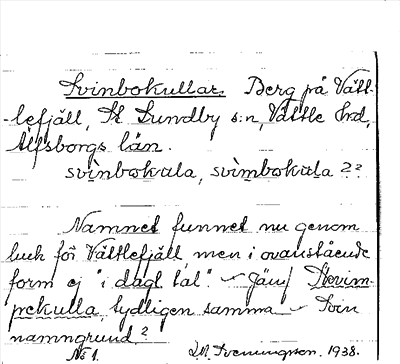 Svinbokullar. Berg på Vätt-
-lefjäll, St Lundby s:n, Vättle Hrd,
Älfsborgs län.
svinbokula, svimbokula ??
Namnet funnet nu genom
luck för Vättlefjäll, men i ovanstående
form ej "i dagl. tal". - Jämf Stevim-
pekulla, tydligen samma - Svin
namngrund?
No 1. Svenungson. 1938.